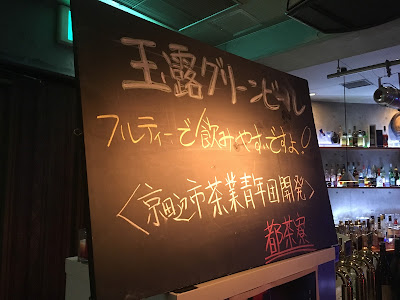 玉露グリーンビール
フルーティーで飲みやすいですよ!
<京田辺市茶業青年団開発>
都茶寮